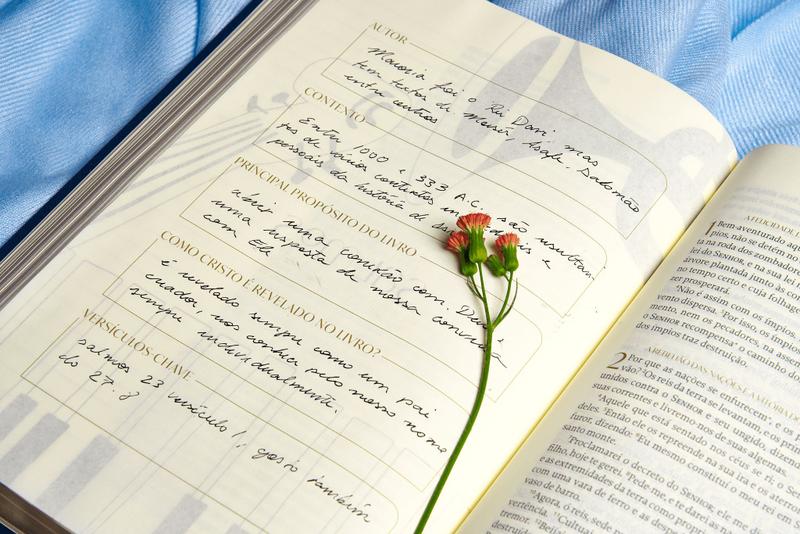 AUTOR
Maioria foi o Rei Davi mas
tem textos de Moisés, Asafe, Salomão
entre outros
CONTEXTO
Entre 1000 e 333 A.C. são resultan
tes de vários contextos e
pessoais da história de
PRINCIPAL PROPÓSITO DO LIVRO
abrir uma conexão com Deus e
uma resposta de nossa conversa
com Ele
COMO CRISTO É REVELADO NO LIVRO?
é revelado sempre como um pai
criador, nos conduz pelo nosso nome
sempre individualmente.
VERSÍCULOS-CHAVE
salmos 23 versículo 1, gosto também
do 27. 8
A FELICIDADE
1 Bem-aventurado aqu
pios, não se detém no
ta na roda dos zombador
lei do SENHOR, e na sua lei
árvore plantada junto às cor
no tempo certo e cuja folhage
zer prosperará.
Não é assim com os ímpios,
vento dispersa. Por isso, os ímpios
mento, nem os pecadores, na assem
o SENHOR recompensa o caminho do
dos ímpios traz destruição.
A REBELIÃO DAS NAÇÕES, A AUTORIDAD
2 Por que as nações se enfurecem e os p
vão? Os reis da terra se levantam, e os prín
unidos contra o SENHOR e seu ungido, dizend
suas correntes e livremo-nos de suas algemas.
Aquele que está sentado nos céus se ri, o Se
deles. Então ele os repreende na sua ira e os aterror
furor, dizendo: Eu mesmo constituí o meu rei em S
santo monte.
Proclamarei o decreto do SENHOR, ele me di
filho, hoje te gerei. Pede-me, e te darei as n
e as extremidades da terra como proprie
com uma vara de ferro e as despe
vaso de barro.
Agora, ó reis, sede p
vertência. Cultua
tremor. Beij
destruído